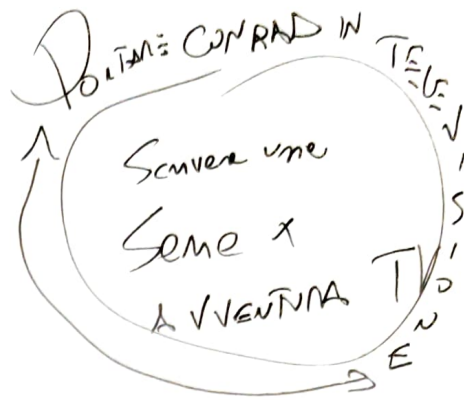 PORTARE CONRAD IN TELEVISIONE
Scrivere una
Serie x
AVVENTURA TV